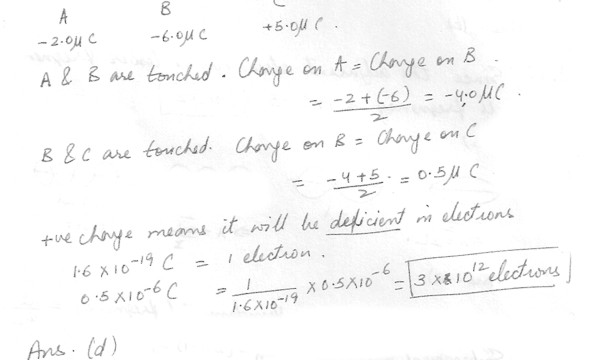 A B
-2.0μC -6.0μC +5.0μC.
A & B are touched. Charge on A = Charge on B.
= -2+(-6)/2 = -4.0μC.
B & C are touched. Charge on B = Charge on C
= -4+5/2 = 0.5μC
+ve charge means it will be deficient in electrons
1.6×10⁻¹⁹ C = 1 electron.
0.5×10⁻⁶ C = 1/1.6×10⁻¹⁹ × 0.5×10⁻⁶ = 3×10¹² electrons
Ans. (d)